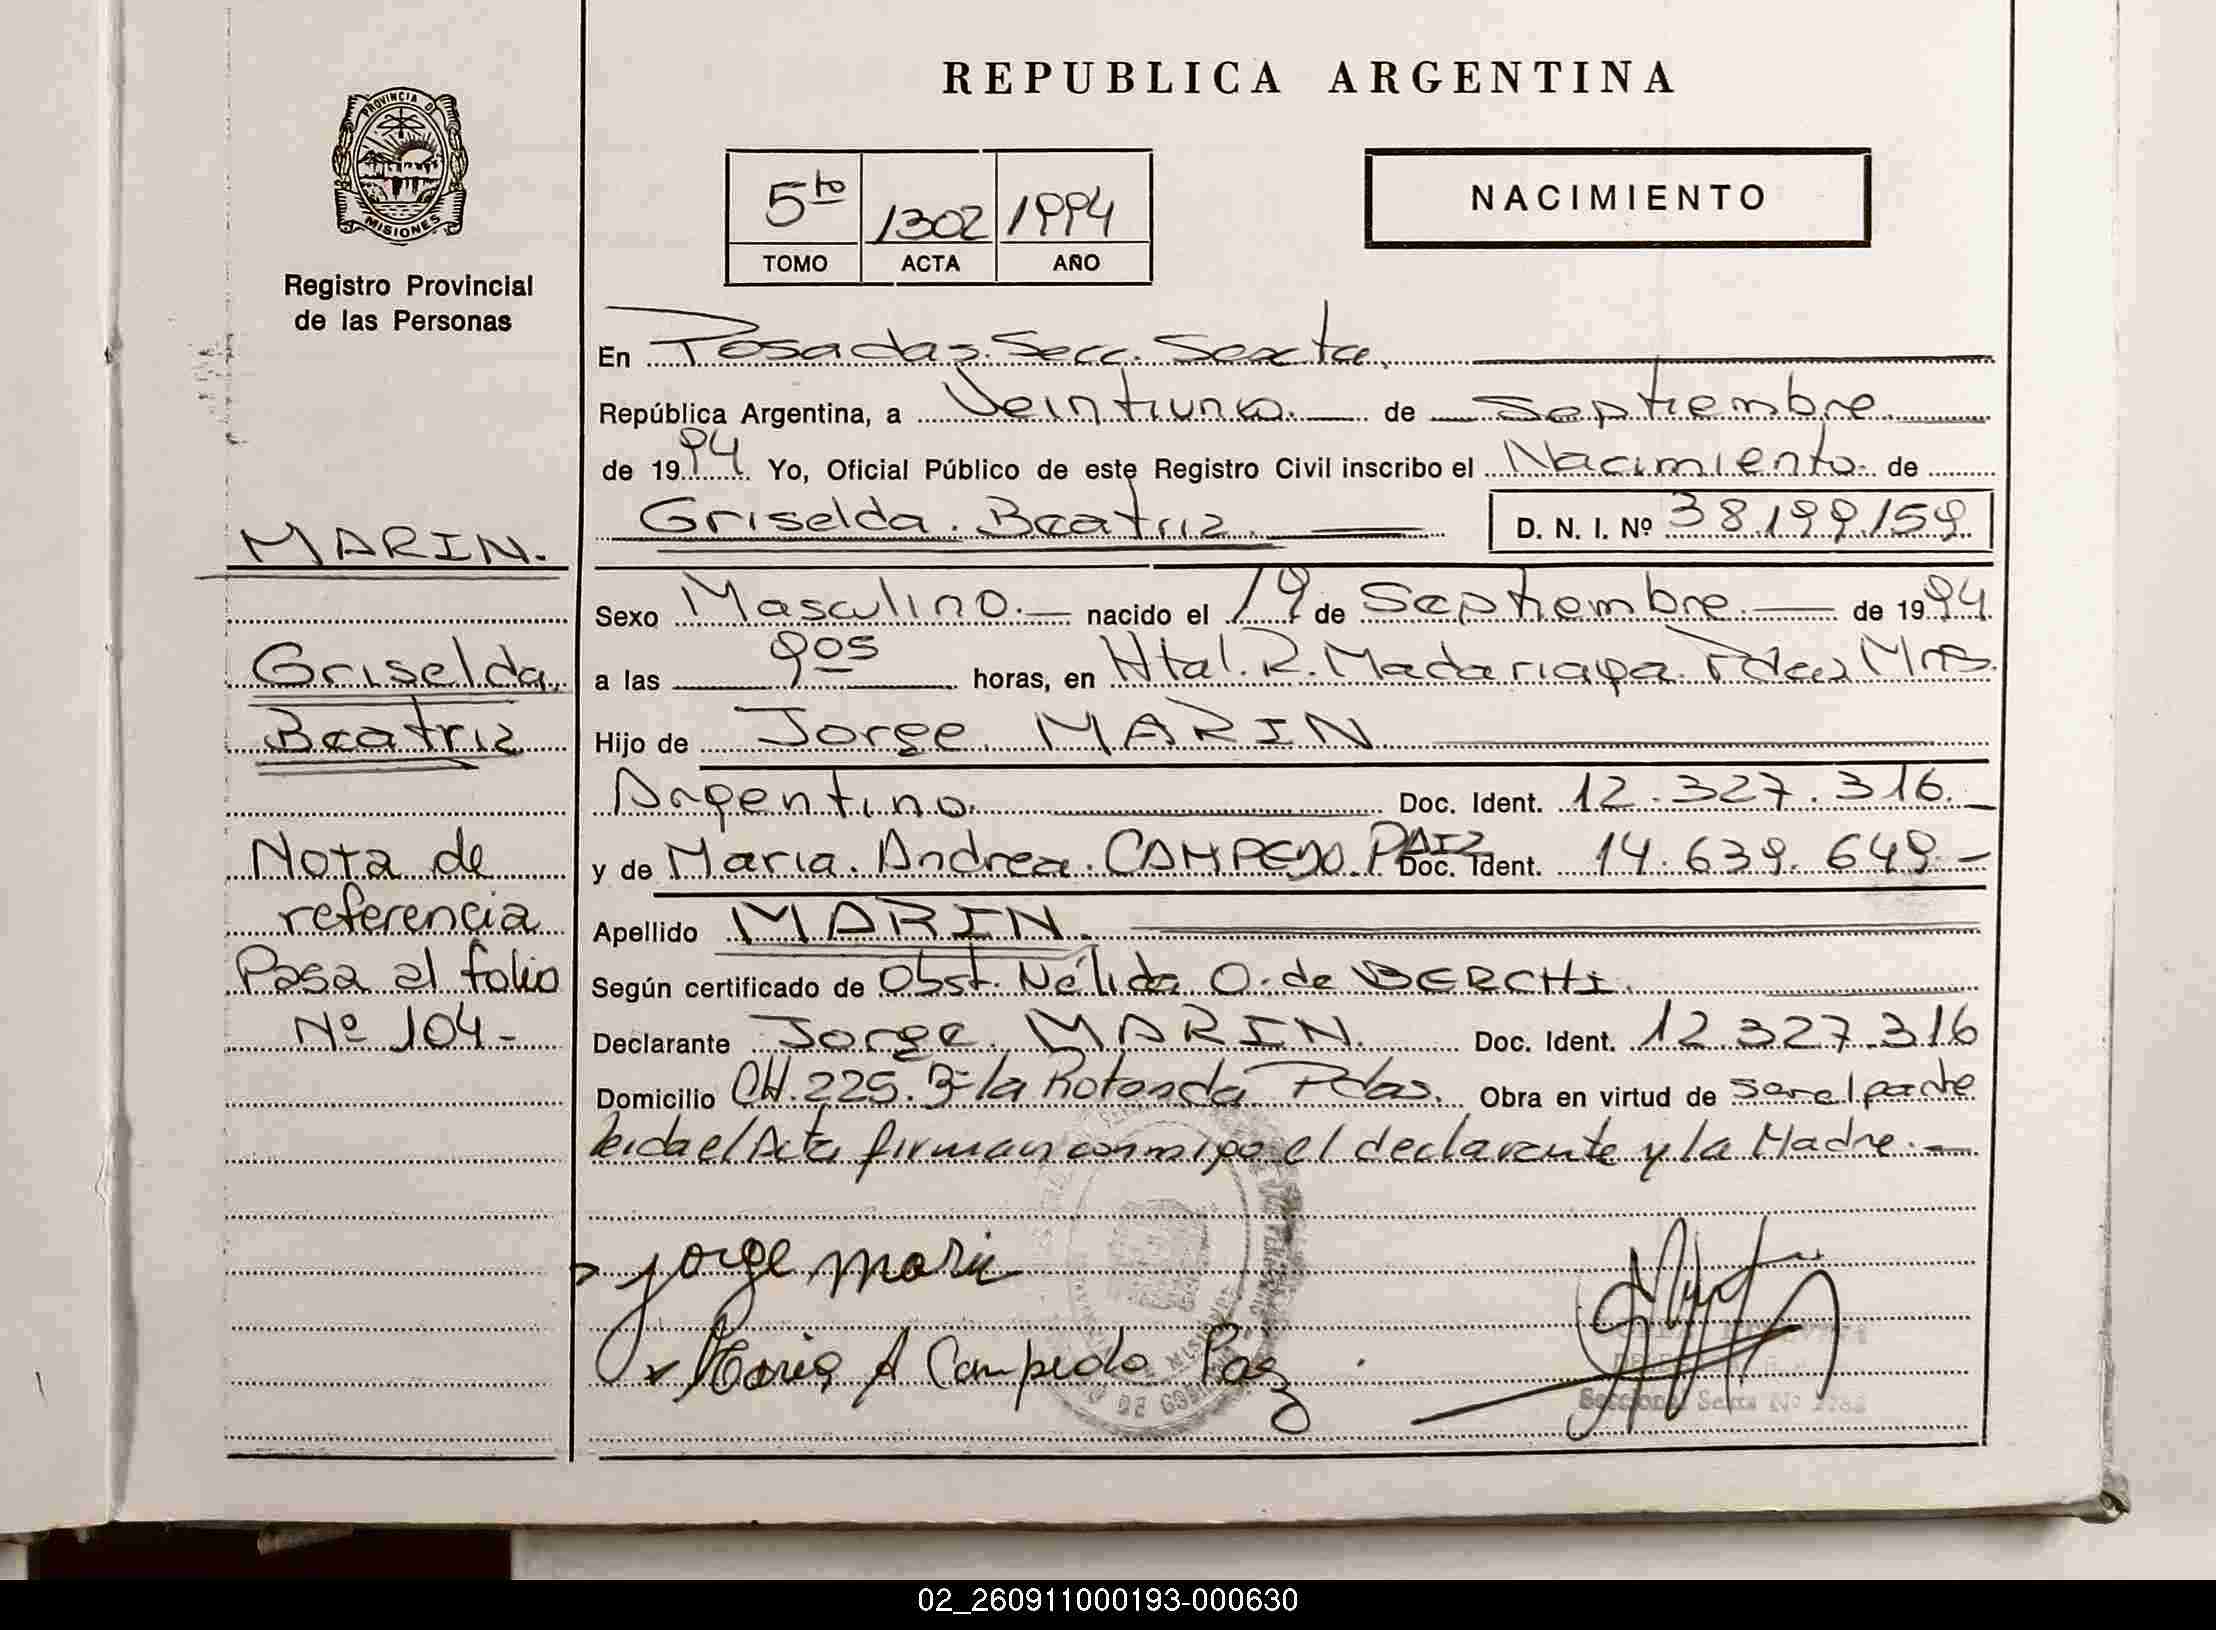 REPUBLICA ARGENTINA
PROVINCIA DE
MISIONES
Registro Provincial
de las Personas
5to 1302 1994
TOMO ACTA AÑO
NACIMIENTO
En Posadas. Secc. Sexta.
República Argentina, a Veintiuno. de Septiembre
de 1994. Yo, Oficial Público de este Registro Civil inscribo el Nacimiento. de
Griselda. Beatriz. D. N. I. Nº 38.199.159
Sexo Masculino. nacido el 19 de Septiembre. de 1994.
a las 9 05 horas, en Htal. R. Madariaga. Pdas Mnes.
Hijo de Jorge. MARIN
Argentino. Doc. Ident. 12.327.316.
y de Maria. Andrea. CAMPEDO. PAIZ Doc. Ident. 14.639.649.-
Apellido MARIN.
Según certificado de Obst. Nélida O. de BERCHI.
Declarante Jorge. MARIN. Doc. Ident. 12.327.316
Domicilio CH. 225. Bº la Rotonda Pdas. Obra en virtud de ser el padre
leida el Acta firman conmigo el declarante y la Madre.-
Jorge Marin
Maria A Campedo Paz
Seccional Sexta Nº
MARIN.
Griselda.
Beatriz
Nota de
referencia
Pasa al folio
Nº 104-
02_260911000193-000630